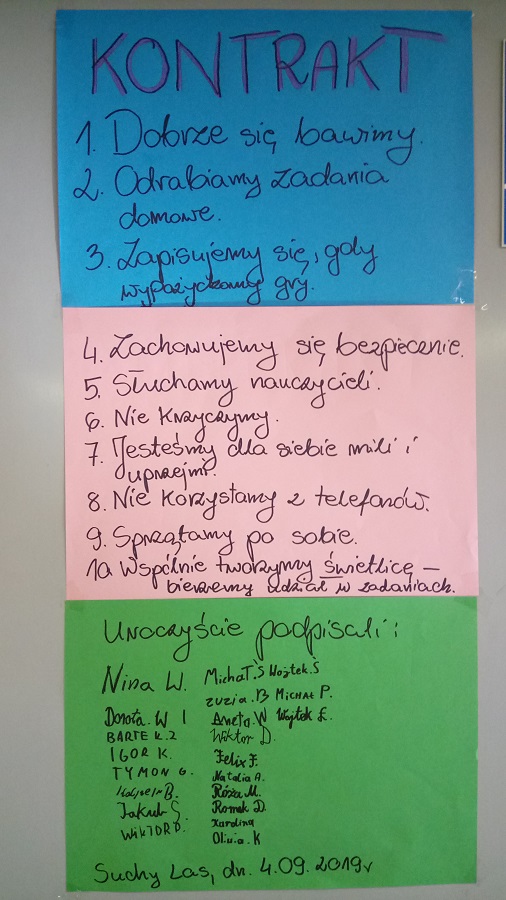 KONTRAKT
1. Dobrze się bawimy.
2. Odrabiamy zadania
domowe.
3. Zapisujemy się, gdy
wypożyczamy gry.
4. Zachowujemy się bezpiecznie.
5. Słuchamy nauczycieli.
6. Nie krzyczymy.
7. Jesteśmy dla siebie mili i
uprzejmi.
8. Nie korzystamy z telefonów.
9. Sprzątamy po sobie.
10 Wspólnie tworzymy świetlicę –
bierzemy udział w zadaniach.
Uroczyście podpisali:
Nina W. Michał.Ś Wojtek.Ś
zuzia.B Michał P.
Dorota.W Aneta.W Wojtek Ł.
BARTEK.Z Wiktor D.
IGOR K. Felix F.
TYMON G. Natalia A.
B. Róża M.
Jakub Romek D.
WIKTOR D. Karolina
Oliwia.K
Suchy Las, dn. 4.09.2019r